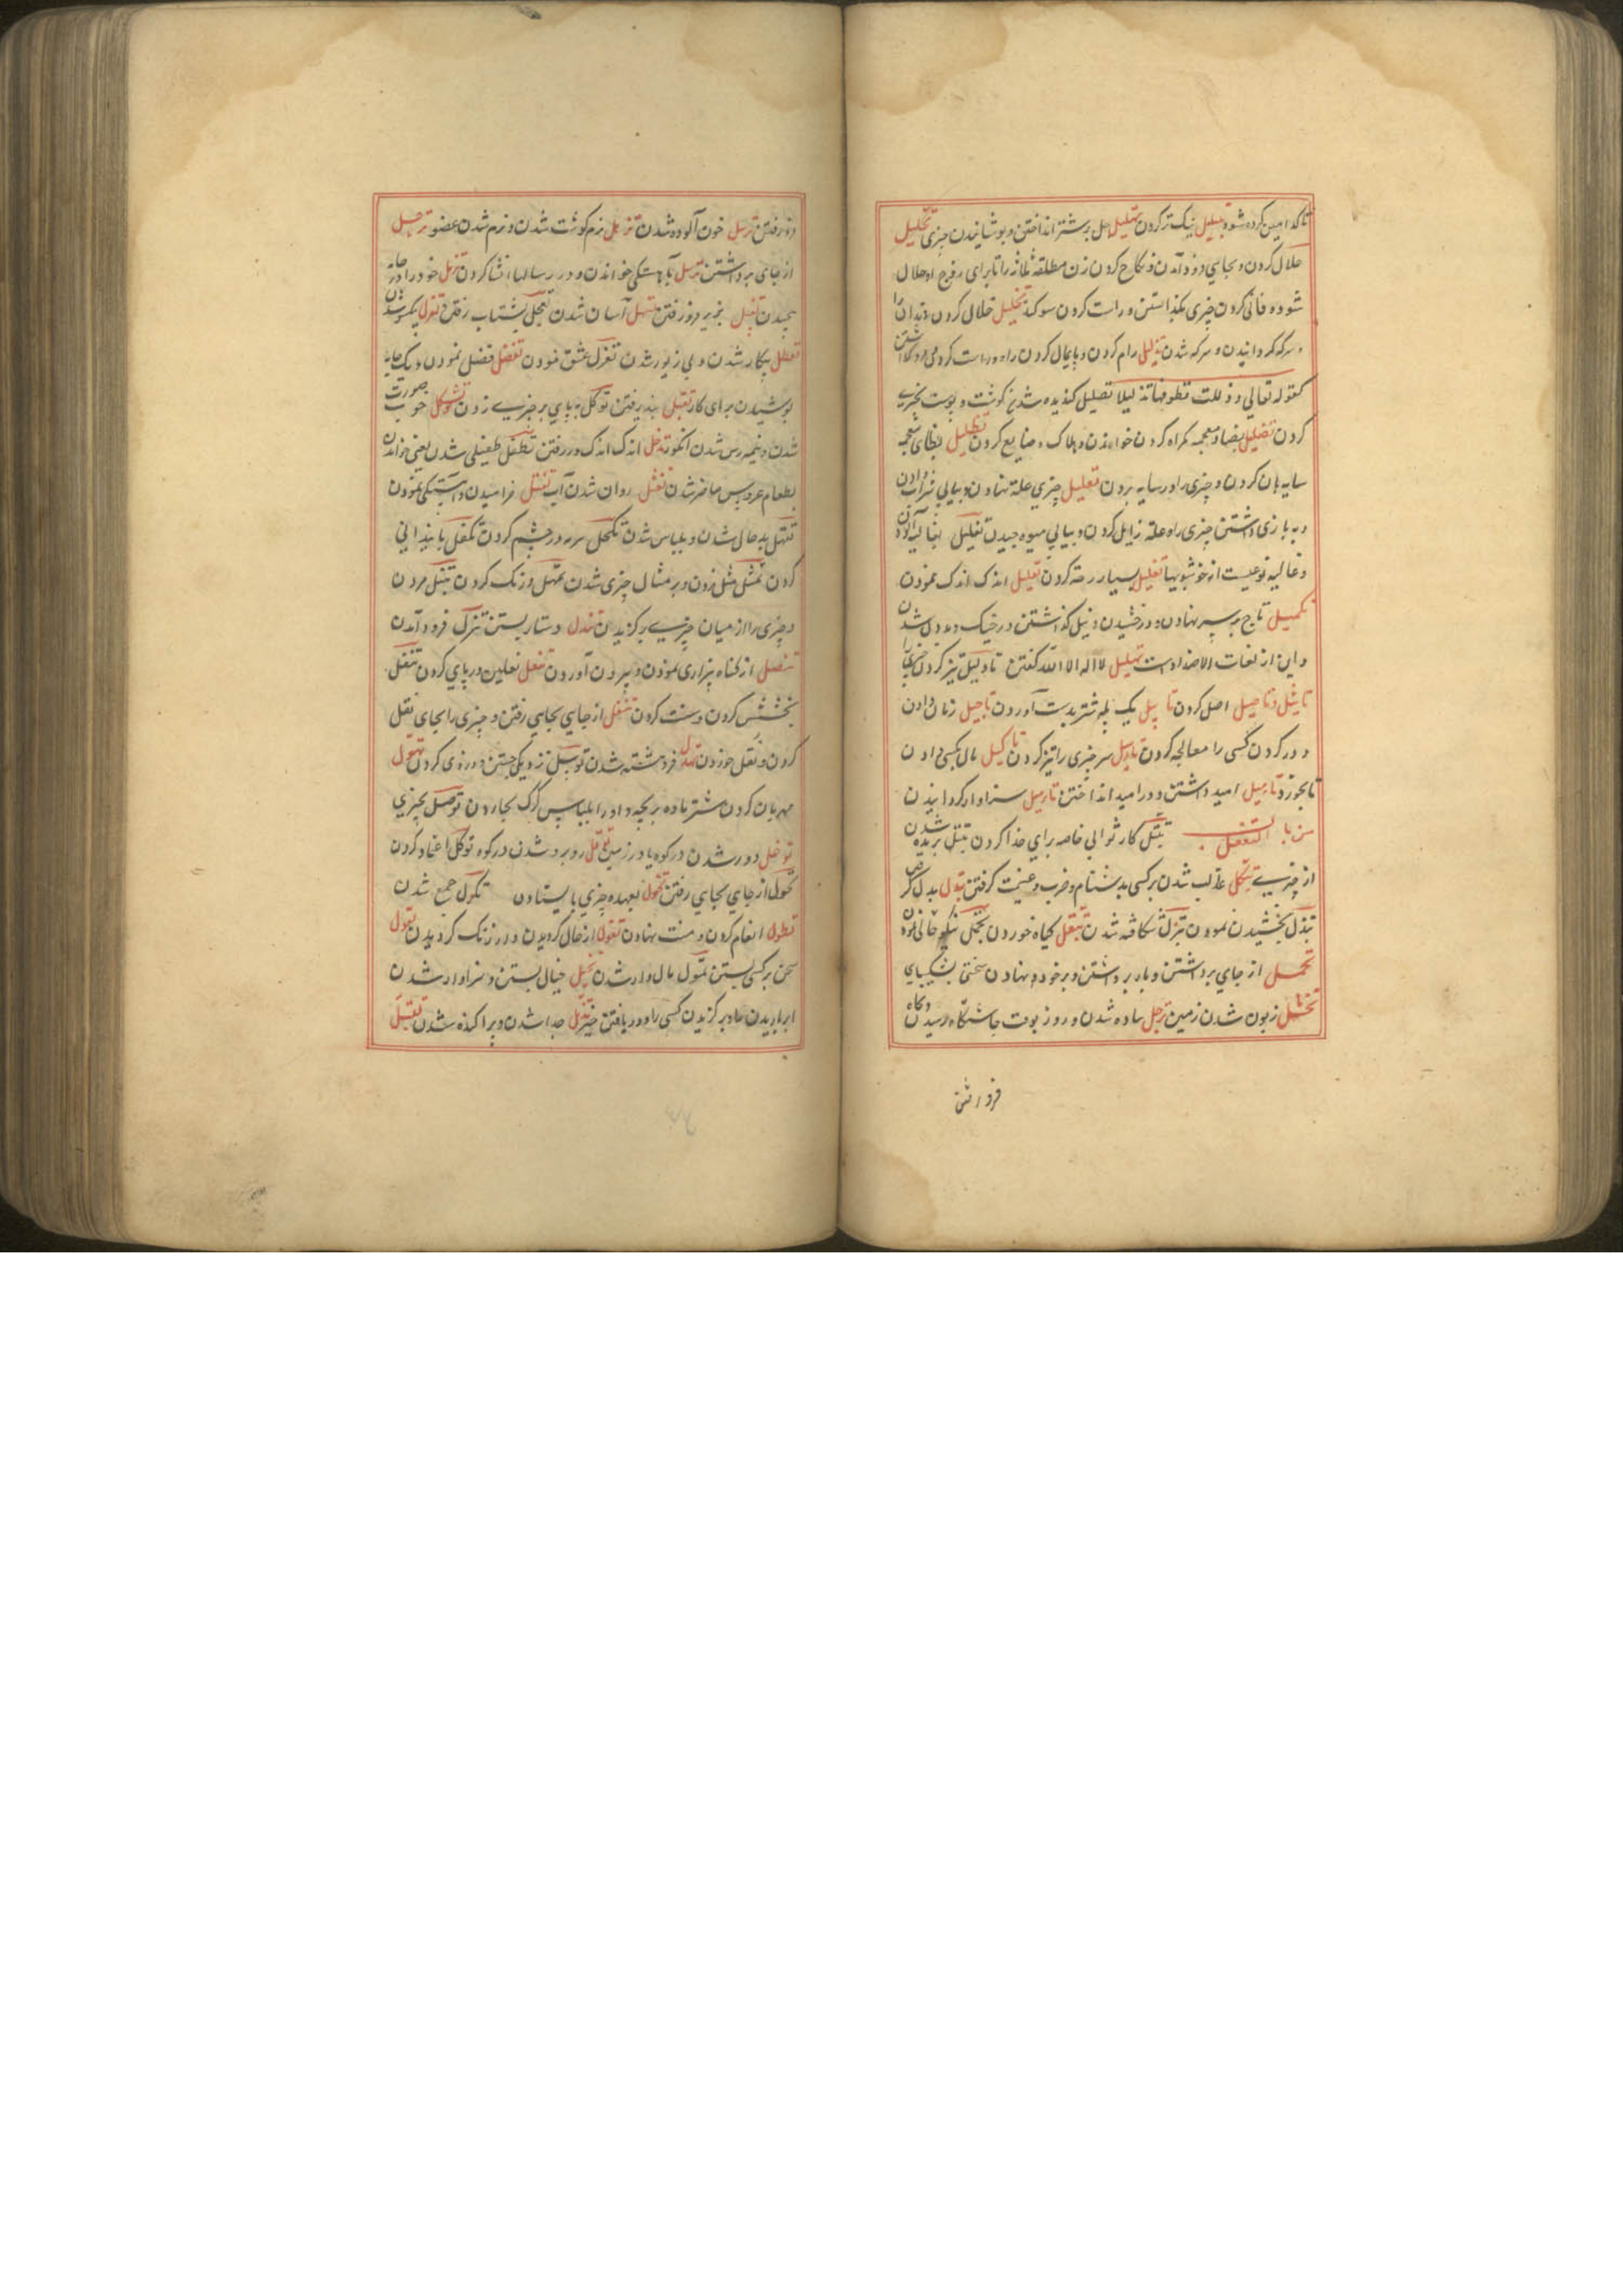 تا که امین کرده شود تبلیل نیک تر کردن تجلیل جل بر شتر انداختن و پوشانیدن چیزی تحلیل
حلال کردن و بجایی فرود آمدن و نکاح کردن زن مطلقه ثلاثه را تا برای زوج او حلال
شود و فانی کردن چیزی بگذاشتن و راست کردن سوکند تخلیل خلال کردن دندان را
و سرکه کردانیدن و سرکه شدن تذلیل رام کردن و پایمال کردن راه و راست کردن
کقوله تعالی و ذللت قطوفها تذلیلا تصلیل کندیده شدن کوشت و پوست بچیزی
کردن تضلیل بضاد معجمه کمراه کردن خواندن و هلاک و ضایع کردن تظلیل بظای معجمه
سایه بان کردن و چیزی را در سایه بردن تعلیل چیزی علة نهادن و پیاپی شراب دادن
و به بازی داشتن چیزی را و علة زایل کردن و پیاپی میوه چیدن تغلیل بغالیه آلودن
و غالیه نوعیست از خوشبویها تفلیل بسیار رخنه کردن تقلیل اندک اندک نمودن
تکلیل تاج بر سر نهادن و درخشیدن و نیک کذاشتن در جنک و بددل شدن
و این از لغات الاضداد است تهلیل لا اله الا الله کفتن تاویل تیز کردن چیزی را
تاثیل و تاصیل اصل کردن تابیل یک پله شتر بدست آوردن تاجیل زمان دادن
و درد کردن کسی را معالجه کردن تاسیل سر چیزی را تیز کردن تاکیل مال بکسی دادن
تا بخورد تامیل امید داشتن و در امید انداختن تاهیل سزاوار کردانیدن
من باب التفعل تبتل کار ثوابی خاصه برای خدا کردن تبتل بریده شدن
از چیزی تبکل غالب شدن بر کسی بدشنام و ضرب و غنیمت کرفتن تبدل بدل کرفتن
تبذل بخشیدن نمودن تبزل شکافته شدن تبقل کیاه خوردن تجمل نیکو حالی نمودن
تحمل از جای برداشتن و بار برداشتن و بر خود نهادن سختی بشکیبایی
زبون شدن زمین ترجل پیاده شدن و روز بوقت چاشتگاه رسیدن و کاه
فرو رفتن
فرو رفتن ترمل خون آلوده شدن تربل نرم کوشت شدن و نرم شدن عضو ترحل
از جای برداشتن ترسل بآهستکی خواندن و در رسالها انشا کردن تزمل خود را در جامه
پیچیدن تسفل بزیر فرو رفتن تسهل آسان شدن تعجل بشتاب رفتن تعزل یکسو شدن
تعطل بیکار شدن و بی زیور شدن تغزل عشق نمودن تفضل فضل نمودن و یک جامه
پوشیدن برای کار تقبل پذیرفتن توکل به پای بر چیزی زدن تشکل خوب صورت
شدن و نیمه رس شدن انکور تدخل اندک اندک در رفتن تطفل طفیلی شدن یعنی خوانده
بطعام عروس حاضر شدن روان شدن آب خرامیدن و آهستکی نمودن
بد حال شدن و بد لباس شدن تکحل سرمه در چشم کردن تکفل پایندانی
کردن تمثل مثل زدن و بر مثال چیزی شدن تمهل درنک کردن تنبل مردن
و چیزی را از میان چیزی برکزیدن تندل دستار بستن تنزل فرود آمدن
تنصل از کناه بیزاری نمودن و بیرون آوردن تنعل نعلین در پای کردن تنفل
بخشش کردن و سنت کردن تنقل از جای بجایی رفتن و چیزی را بجای نقل
کردن و نقل خوردن تهدل فروهشته شدن توسل نزدیکی جستن و دزدی کردن تهول
مهربان کردن شتر ماده بر بچه و او را بلباس کرک بجا بردن توصل بچیزی
توغل دور شدن در کوه یا در زمین توقل روبر شدن در کوه توکل اعتماد کردن
تحول از جای بجایی رفتن تخول بعهده چیزی بایستادن تکول جمع شدن
تطول انعام کردن و منت نهادن تغول از حال کردیدن و رنک رنک کردیدن تقول
سخن بر کسی بستن تمول مال دار شدن تخیل خیال بستن و سزاوار شدن
ابر باریدن را و برکزیدن کسی را و دریافتن خیر تزیل جدا شدن و پراکنده شدن تقیل